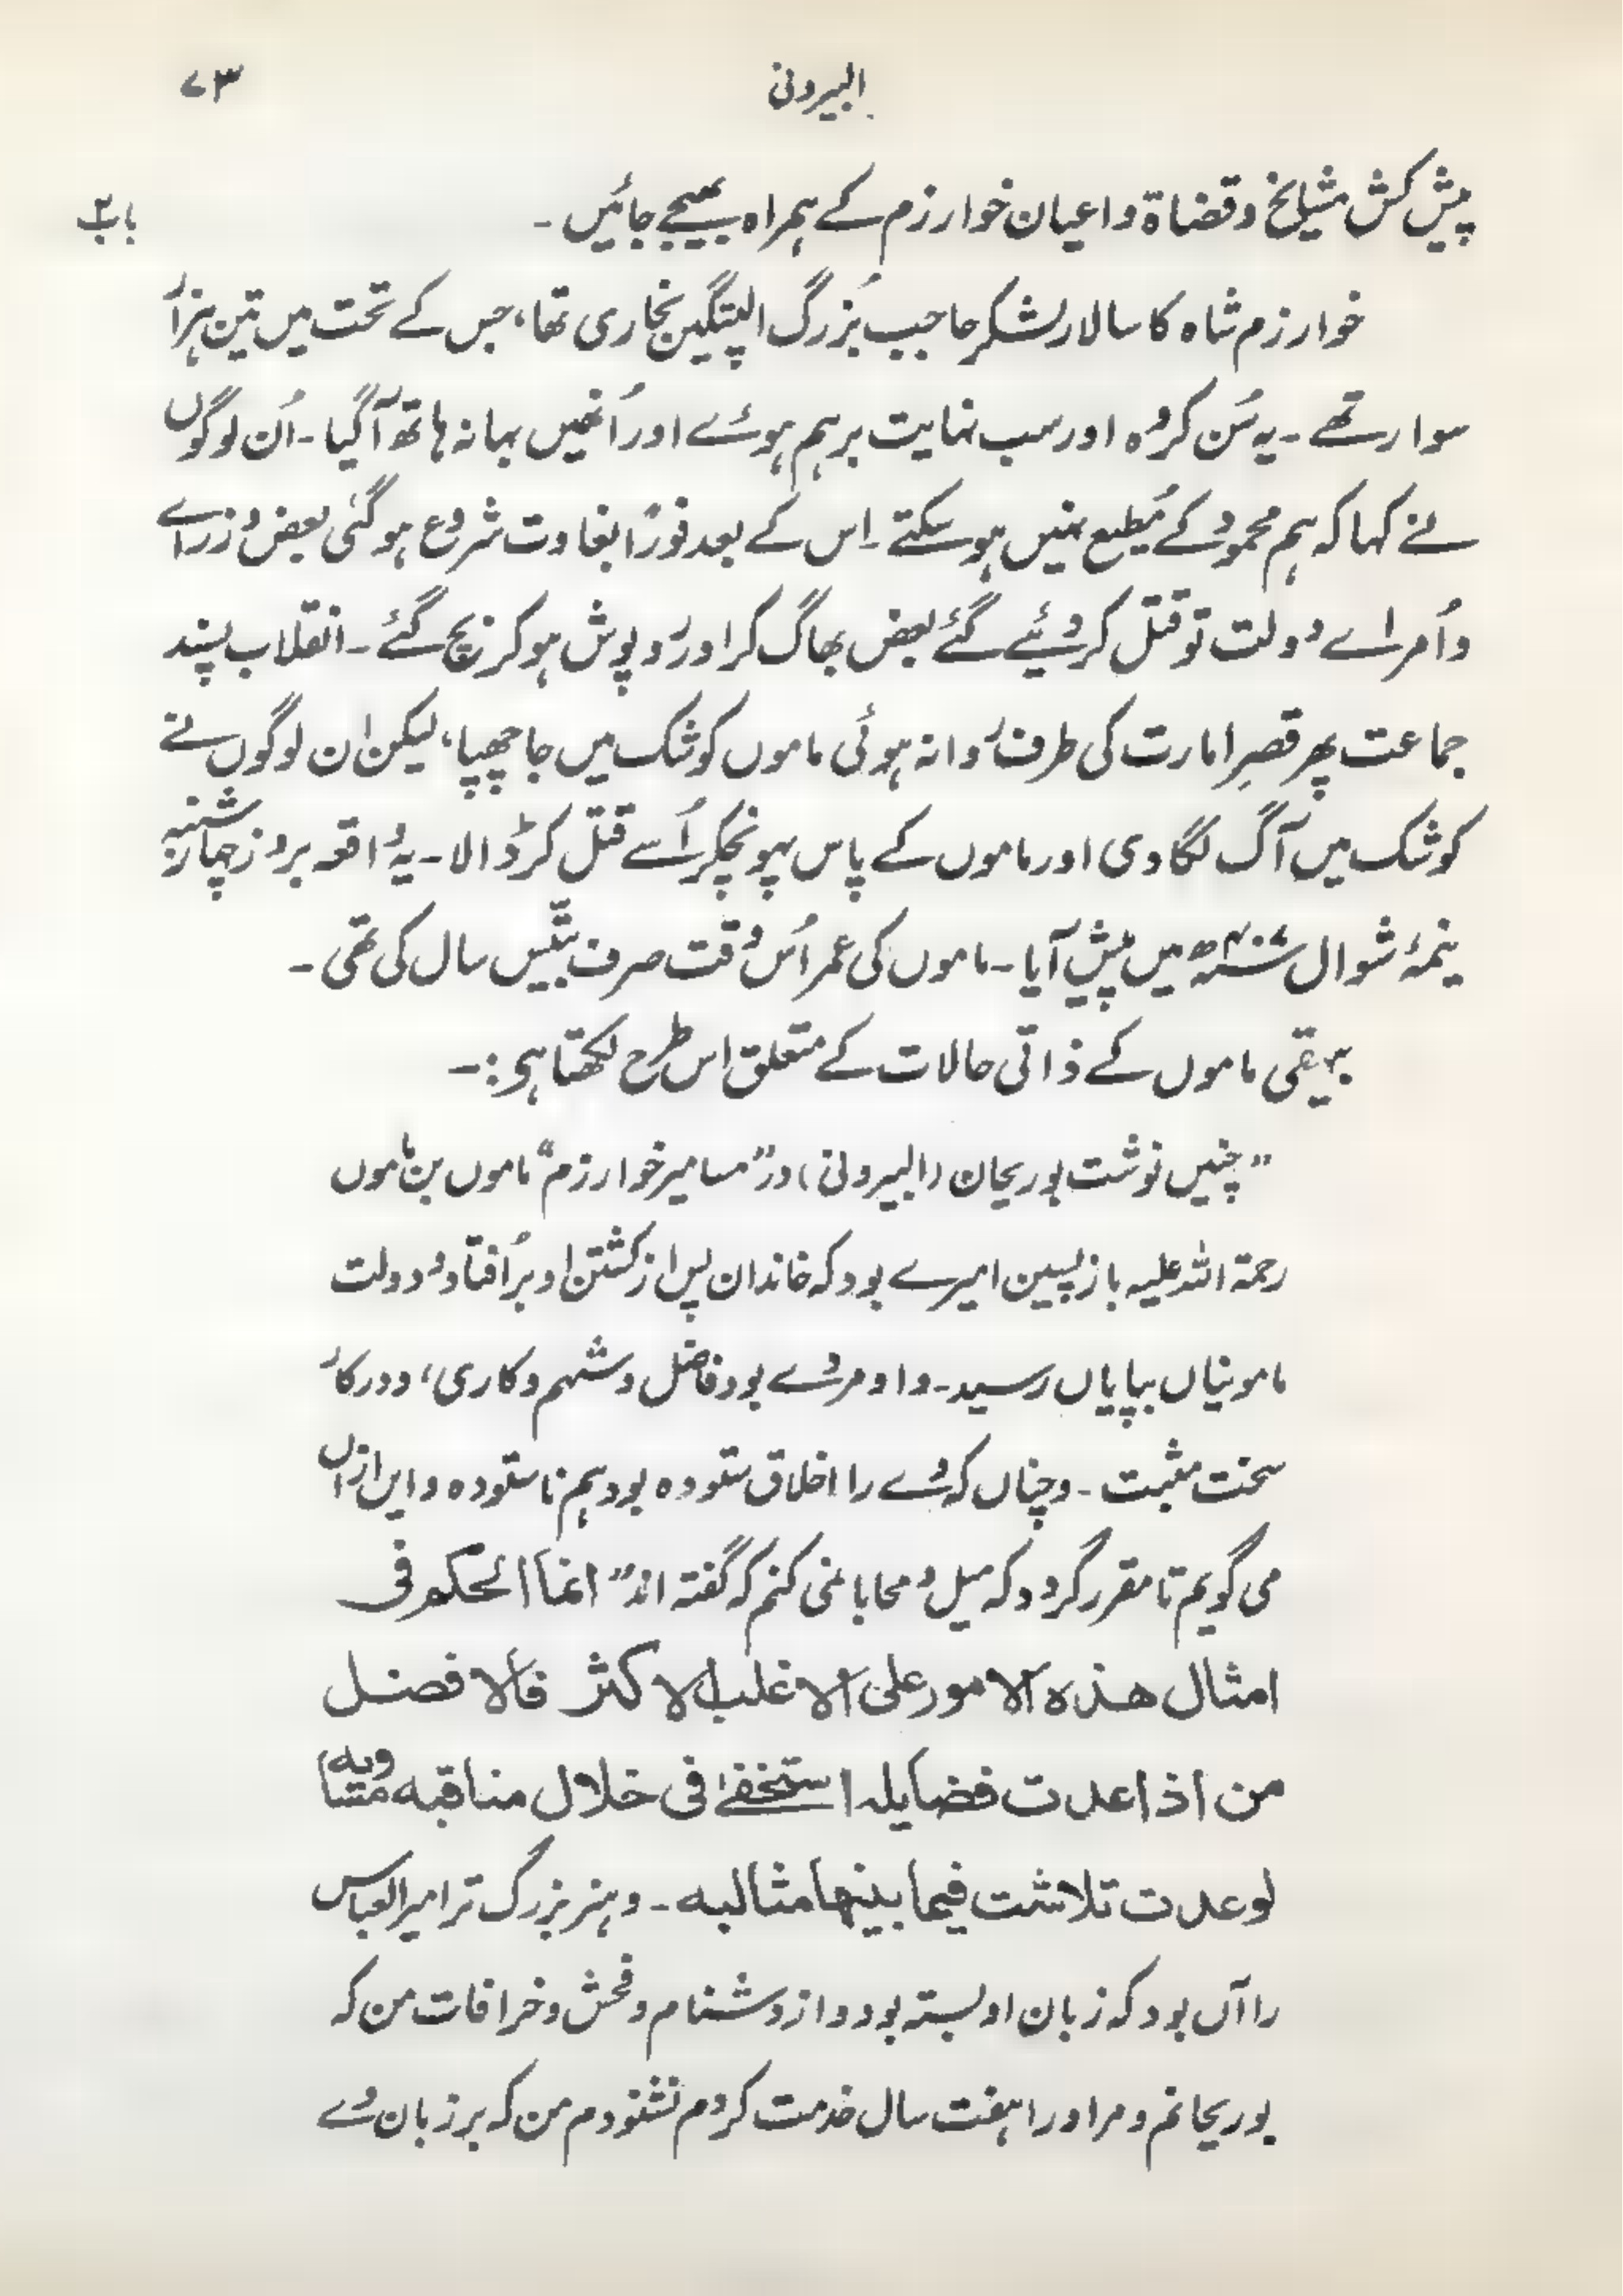 البیرونی
۷۳
باب ۲
پیش کش مشایخ و قضاۃ و اعیان خوارزم کے ہمراہ بھیجے جائیں۔
خوارزم شاہ کا سالار لشکر حاجب بُزرگ الپتگین بخاری تھا، جس کے تحت میں تین ہزار
سوار تھے۔ یہ سُن کر وہ اور سب نہایت برہم ہوئے اور اُنھیں بہانہ ہاتھ آگیا۔ اُن لوگوں
نے کہا کہ ہم محمود کے مُطیع نہیں ہوسکتے۔ اس کے بعد فورًا بغاوت شروع ہوگئی بعض وزراے
و اُمراے دولت تو قتل کردیئے گئے بعض بھاگ کر اور رُوپوش ہوکر بچ گئے۔ انقلاب پسند
جماعت پھر قصرِ امارت کی طرف رَوانہ ہوئی ماموں کوشک میں جا چھپا، لیکن ان لوگوں نے
کوشک میں آگ لگادی اور ماموں کے پاس پہونچکر اُسے قتل کرڈالا۔ یہ واقعہ بروز چہارشنبہ
نیمۂ شوال ۴۰۷ھ میں پیش آیا۔ ماموں کی عمر اُس وقت صرف بتّیس سال کی تھی۔
بیہقی ماموں کے ذاتی حالات کے متعلق اس طرح لکھتا ہی:۔
”چنیں نوشت بوریحان (البیرونی) در ”مسامیر خوارزم“ ماموں بن ماموں
رحمۃ اللہ علیہ بازپسین امیرے بود کہ خاندان پس از کشتن او برُافتاد و دولت
مامونیاں بپایاں رسید۔ و او مردے بود فاضل و شہم و کاری، و در کار
سخت مثبت۔ و چناں کہ وے را اخلاق ستودہ بود ہم ناستودہ و ایں ازاں
می گویم تا مقرر گردد کہ میل و محابا نمی کنم کہ گفتہ اند ”انما الحکم فی
امثال ھذہ الامور علی الاغلب الاکثر فالافضل
من اذا عدت فضایلہ استخفے فی خلال مناقبہ مساویہ
لو عدت تلاشت فیما بینھا مثالبہ۔ و ہنر بزرگ تر امیر ابوالعباس
را آں بود کہ زبان او بستہ بود و از دشنام و فحش و خرافات من کہ
بوریحانم و مر او را ہفت سال خدمت کردم نشنودم من کہ بر زبان وے